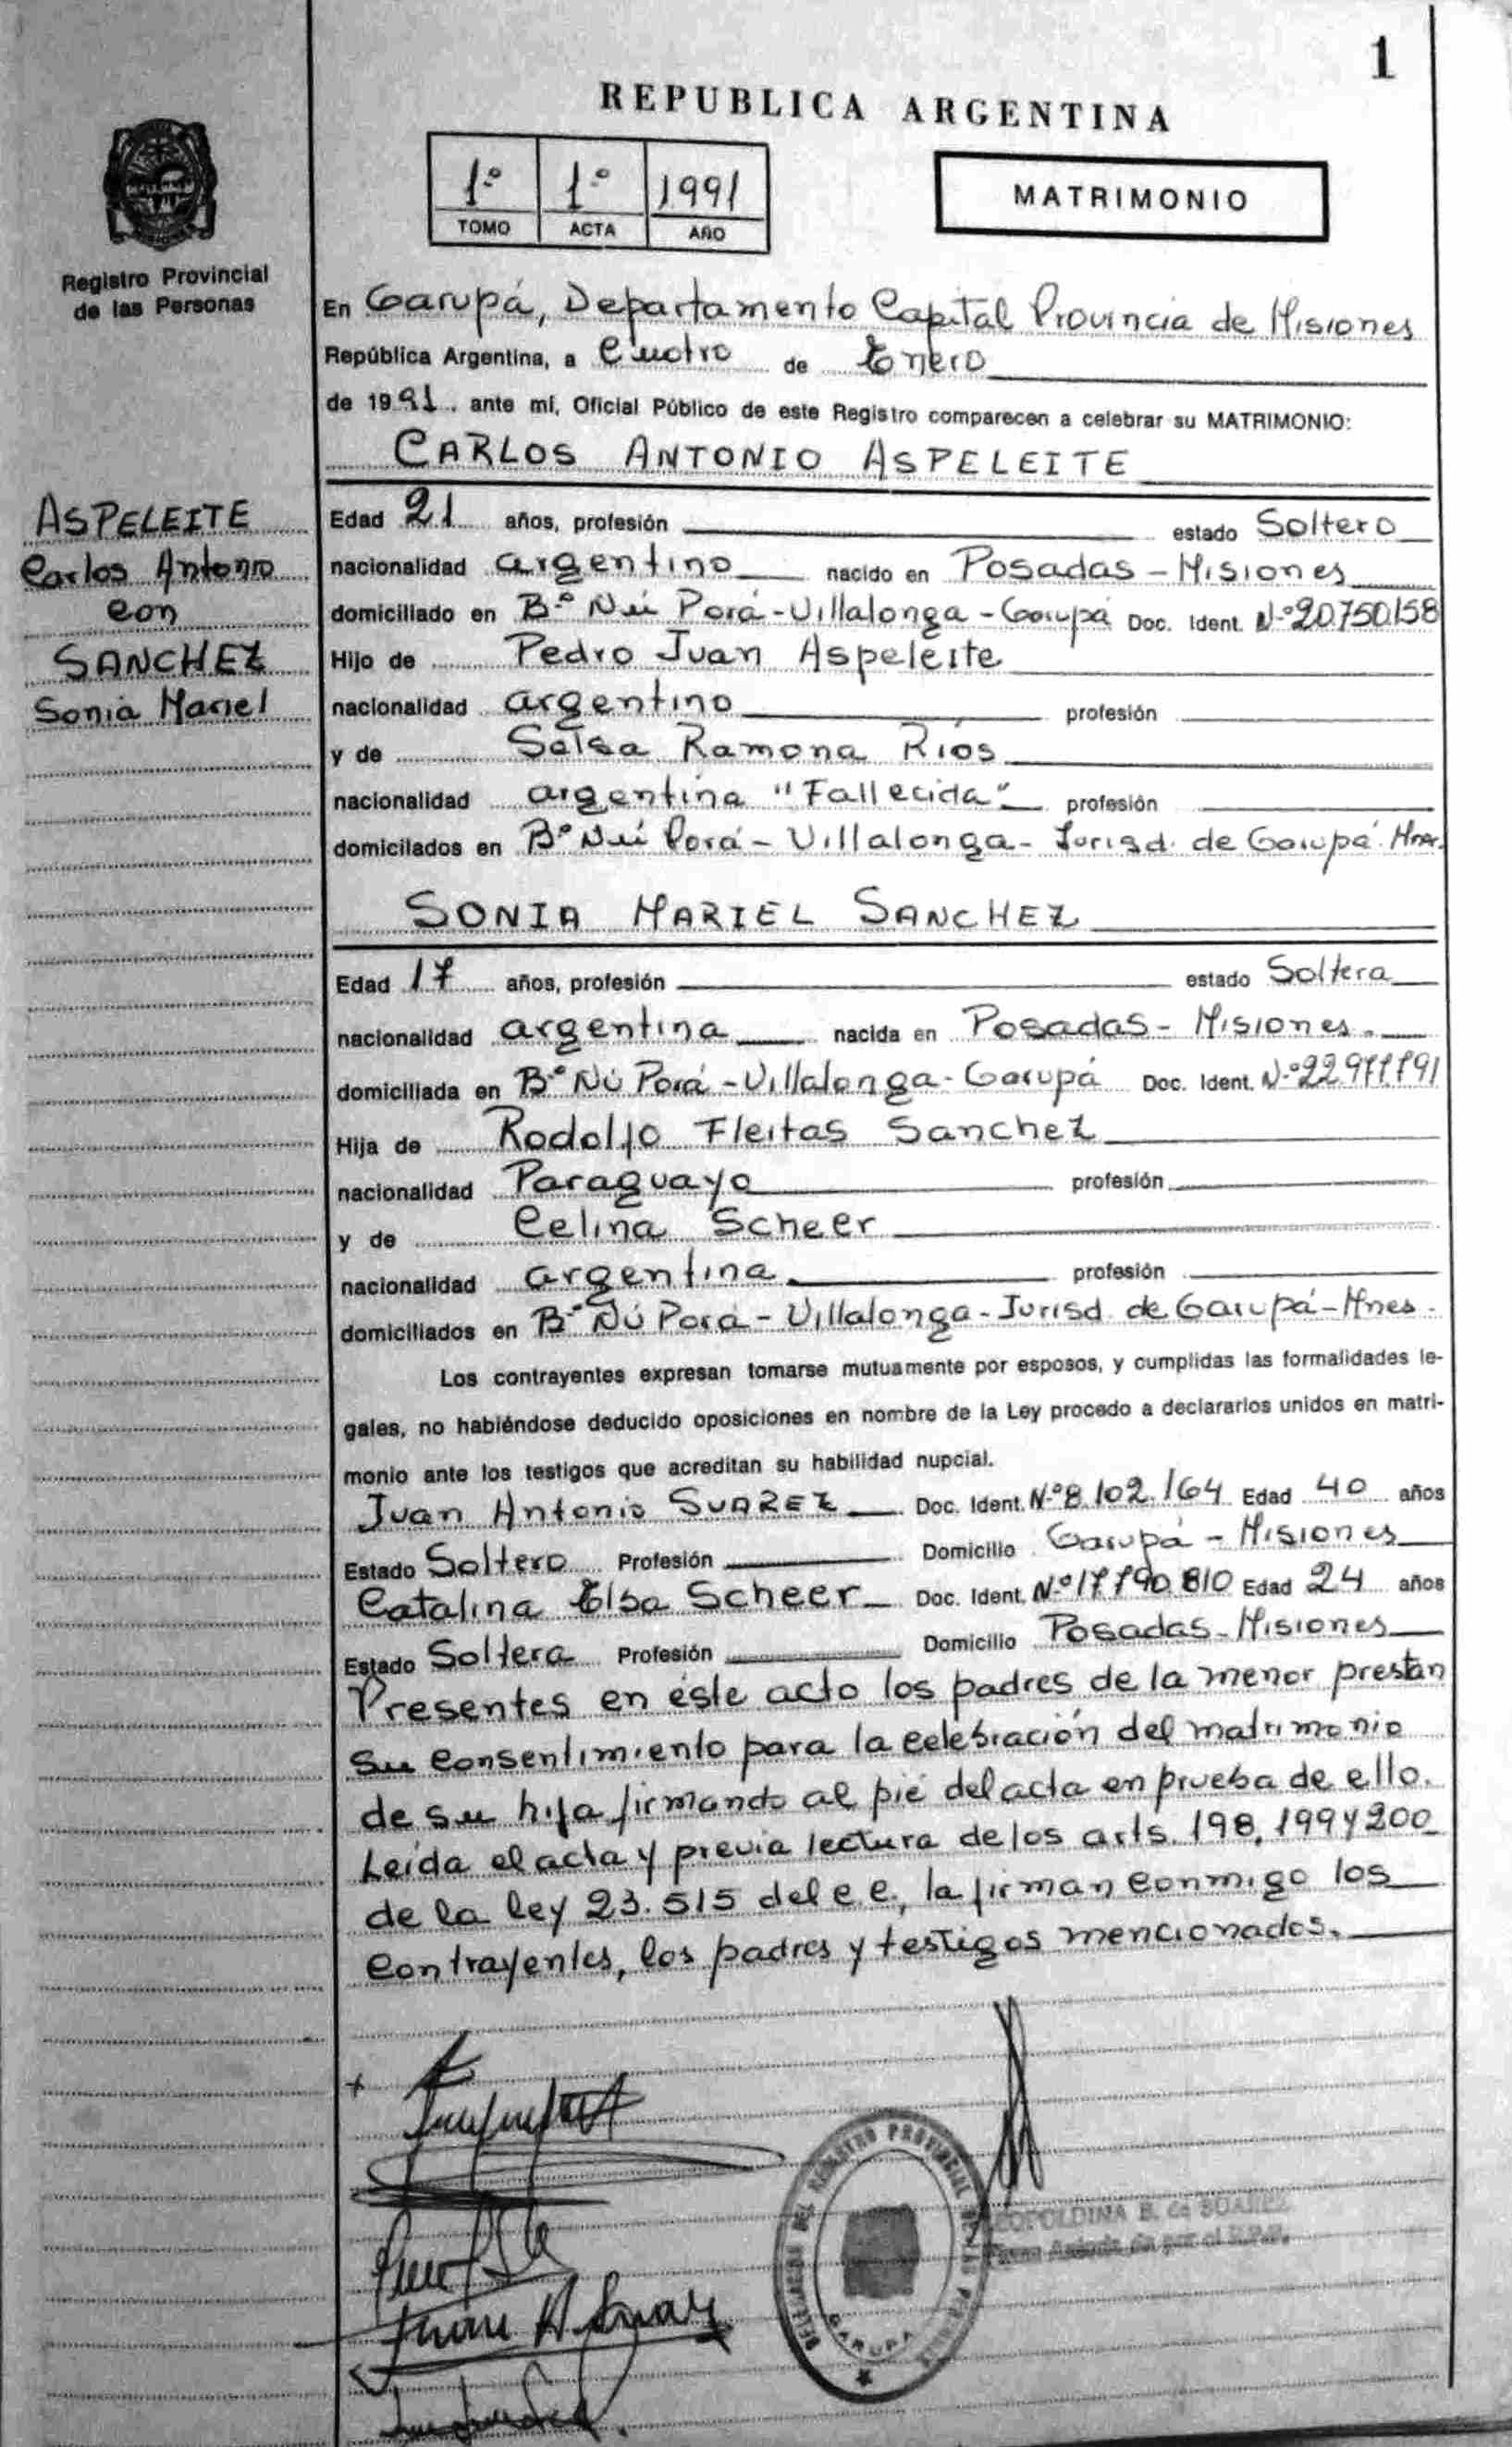 1
REPUBLICA ARGENTINA
1º 1º 1991
TOMO ACTA AÑO
MATRIMONIO
Registro Provincial
de las Personas
En Garupá, Departamento Capital Provincia de Misiones
República Argentina, a Cuatro de Enero
de 1991. ante mí, Oficial Público de este Registro comparecen a celebrar su MATRIMONIO:
CARLOS ANTONIO ASPELEITE
ASPELEITE
Carlos Antonio
con
SANCHEZ
Sonia Mariel
Edad 21 años, profesión estado Soltero
nacionalidad argentino nacido en Posadas - Misiones
domiciliado en Bº Ñu Porá - Villalonga - Garupá Doc. Ident. Nº 20.750.158
Hijo de Pedro Juan Aspeleite
nacionalidad argentino profesión
y de Ramona Ríos
nacionalidad argentina "Fallecida" profesión
domicilados en Bº Ñu Porá - Villalonga - Jurisd. de Garupá
SONIA MARIEL SANCHEZ
Edad 17 años, profesión estado Soltera
nacionalidad argentina nacida en Posadas - Misiones.
domiciliada en Bº Ñú Porá - Villalonga - Garupá Doc. Ident. Nº
Hija de Rodolfo Fleitas Sanchez
nacionalidad Paraguayo profesión
y de Celina Scheer
nacionalidad argentina profesión
domiciliados en Bº Ñú Porá - Villalonga - Jurisd. de Garupá - Mnes.
Los contrayentes expresan tomarse mutuamente por esposos, y cumplidas las formalidades le-
gales, no habiéndose deducido oposiciones en nombre de la Ley procedo a declararlos unidos en matri-
monio ante los testigos que acreditan su habilidad nupcial.
Juan Antonio SUAREZ Doc. Ident. Nº 8.102.164 Edad 40 años
Estado Soltero Profesión Domicilio Garupá - Misiones
Catalina Elsa Scheer Doc. Ident. Nº 17.790.810 Edad 24 años
Estado Soltera Profesión Domicilio Posadas - Misiones
Presentes en éste acto los padres de la menor prestan
su consentimiento para la celebración del matrimonio
de su hija firmando al pié del acta en prueba de ello.
Leída el acta y previa lectura de los arts. 198, 199 y 200
de la ley 23.515 del c.c., la firman conmigo los
contrayentes, los padres y testigos mencionados.
Juan A. Suarez
DELEGACION DEL REGISTRO PROVINCIAL DE LAS PERSONAS
GARUPA
LEOPOLDINA B. de SUAREZ